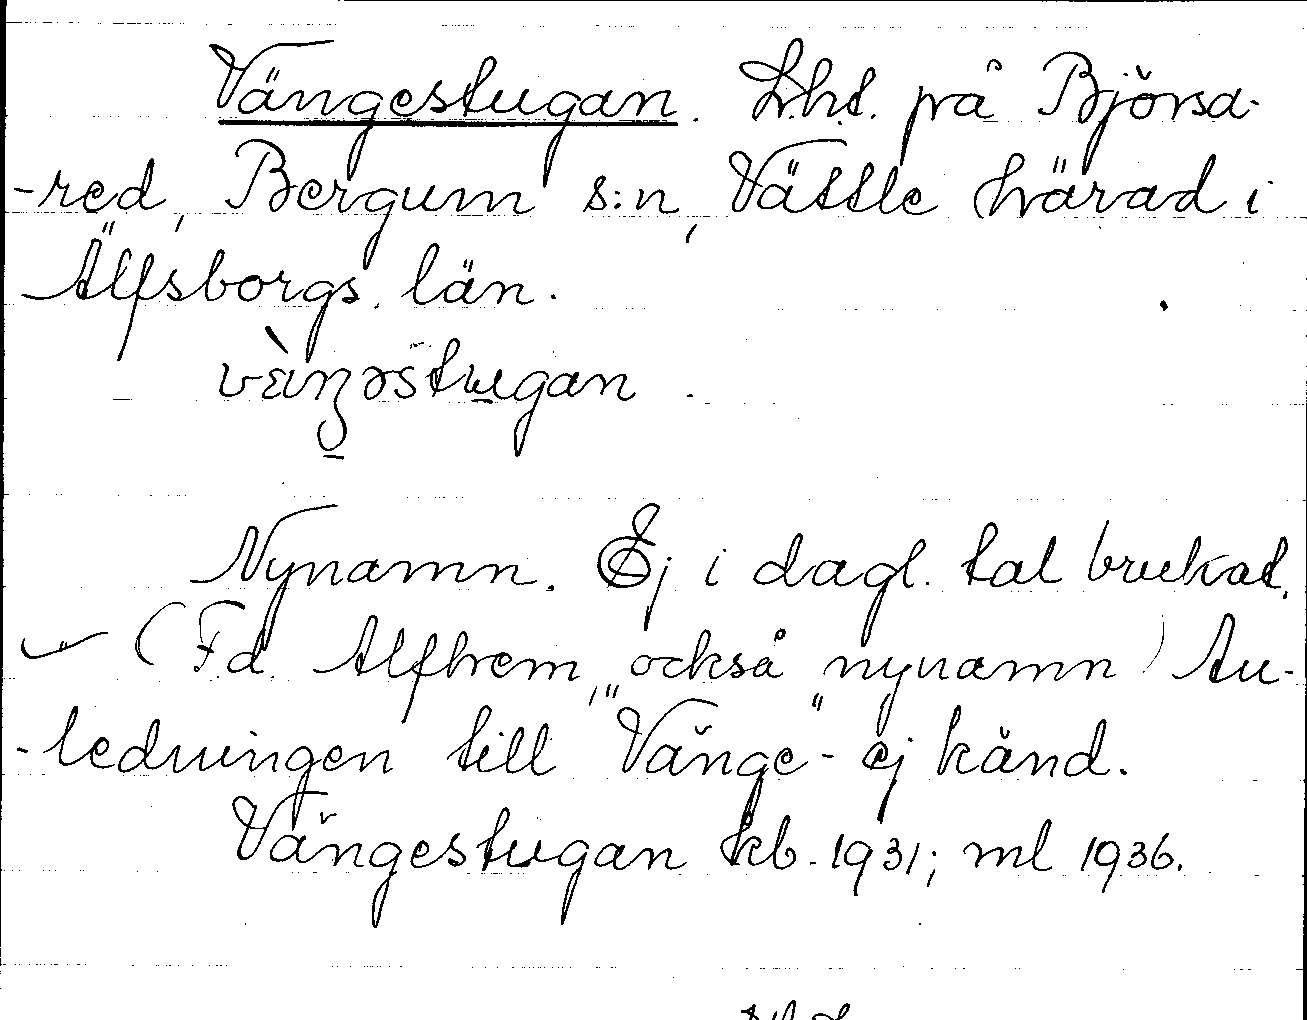 Vängestugan. Lht. på Björsa-
-red, Bergum s:n, Vättle härad i
Älfsborgs län.
vɛ̀ŋəstugan.
Nynamn. Ej i dagl. tal brukat.
(F.d. Alfhem, också nynamn) An-
-ledningen till "Vänge"- ej känd.
Vängestugan kb. 1931; ml 1936.